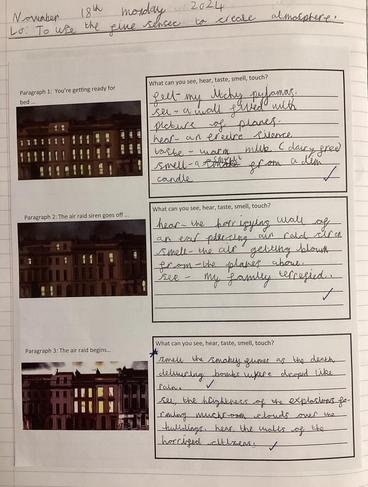 November 18th monday 2024
LO: To use the five senses to create atmosphere.
Paragraph 1: You're getting ready for
bed ...
What can you see, hear, taste, smell, touch?
feel - my Itchy pyjamas.
see - a wall filled with
picture of planes.
hear - an silence.
taste - warm milk (dairy free)
smell - a from a dim
candle
Paragraph 2: The air raid siren goes off ...
What can you see, hear, taste, smell, touch?
hear - the horrifying wail of
an ear piercing air raid siren
smell - the air getting blown
from - the planes above.
see - my family terrefied.
Paragraph 3: The air raid begins...
What can you see, hear, taste, smell, touch?
smell the smokey fumes as the death
delivering bombs were droped like
rain.
see, the brightness of the explosions fo-
rming mushroom clouds over the
buildings. hear the wails of the
horrified citizens.